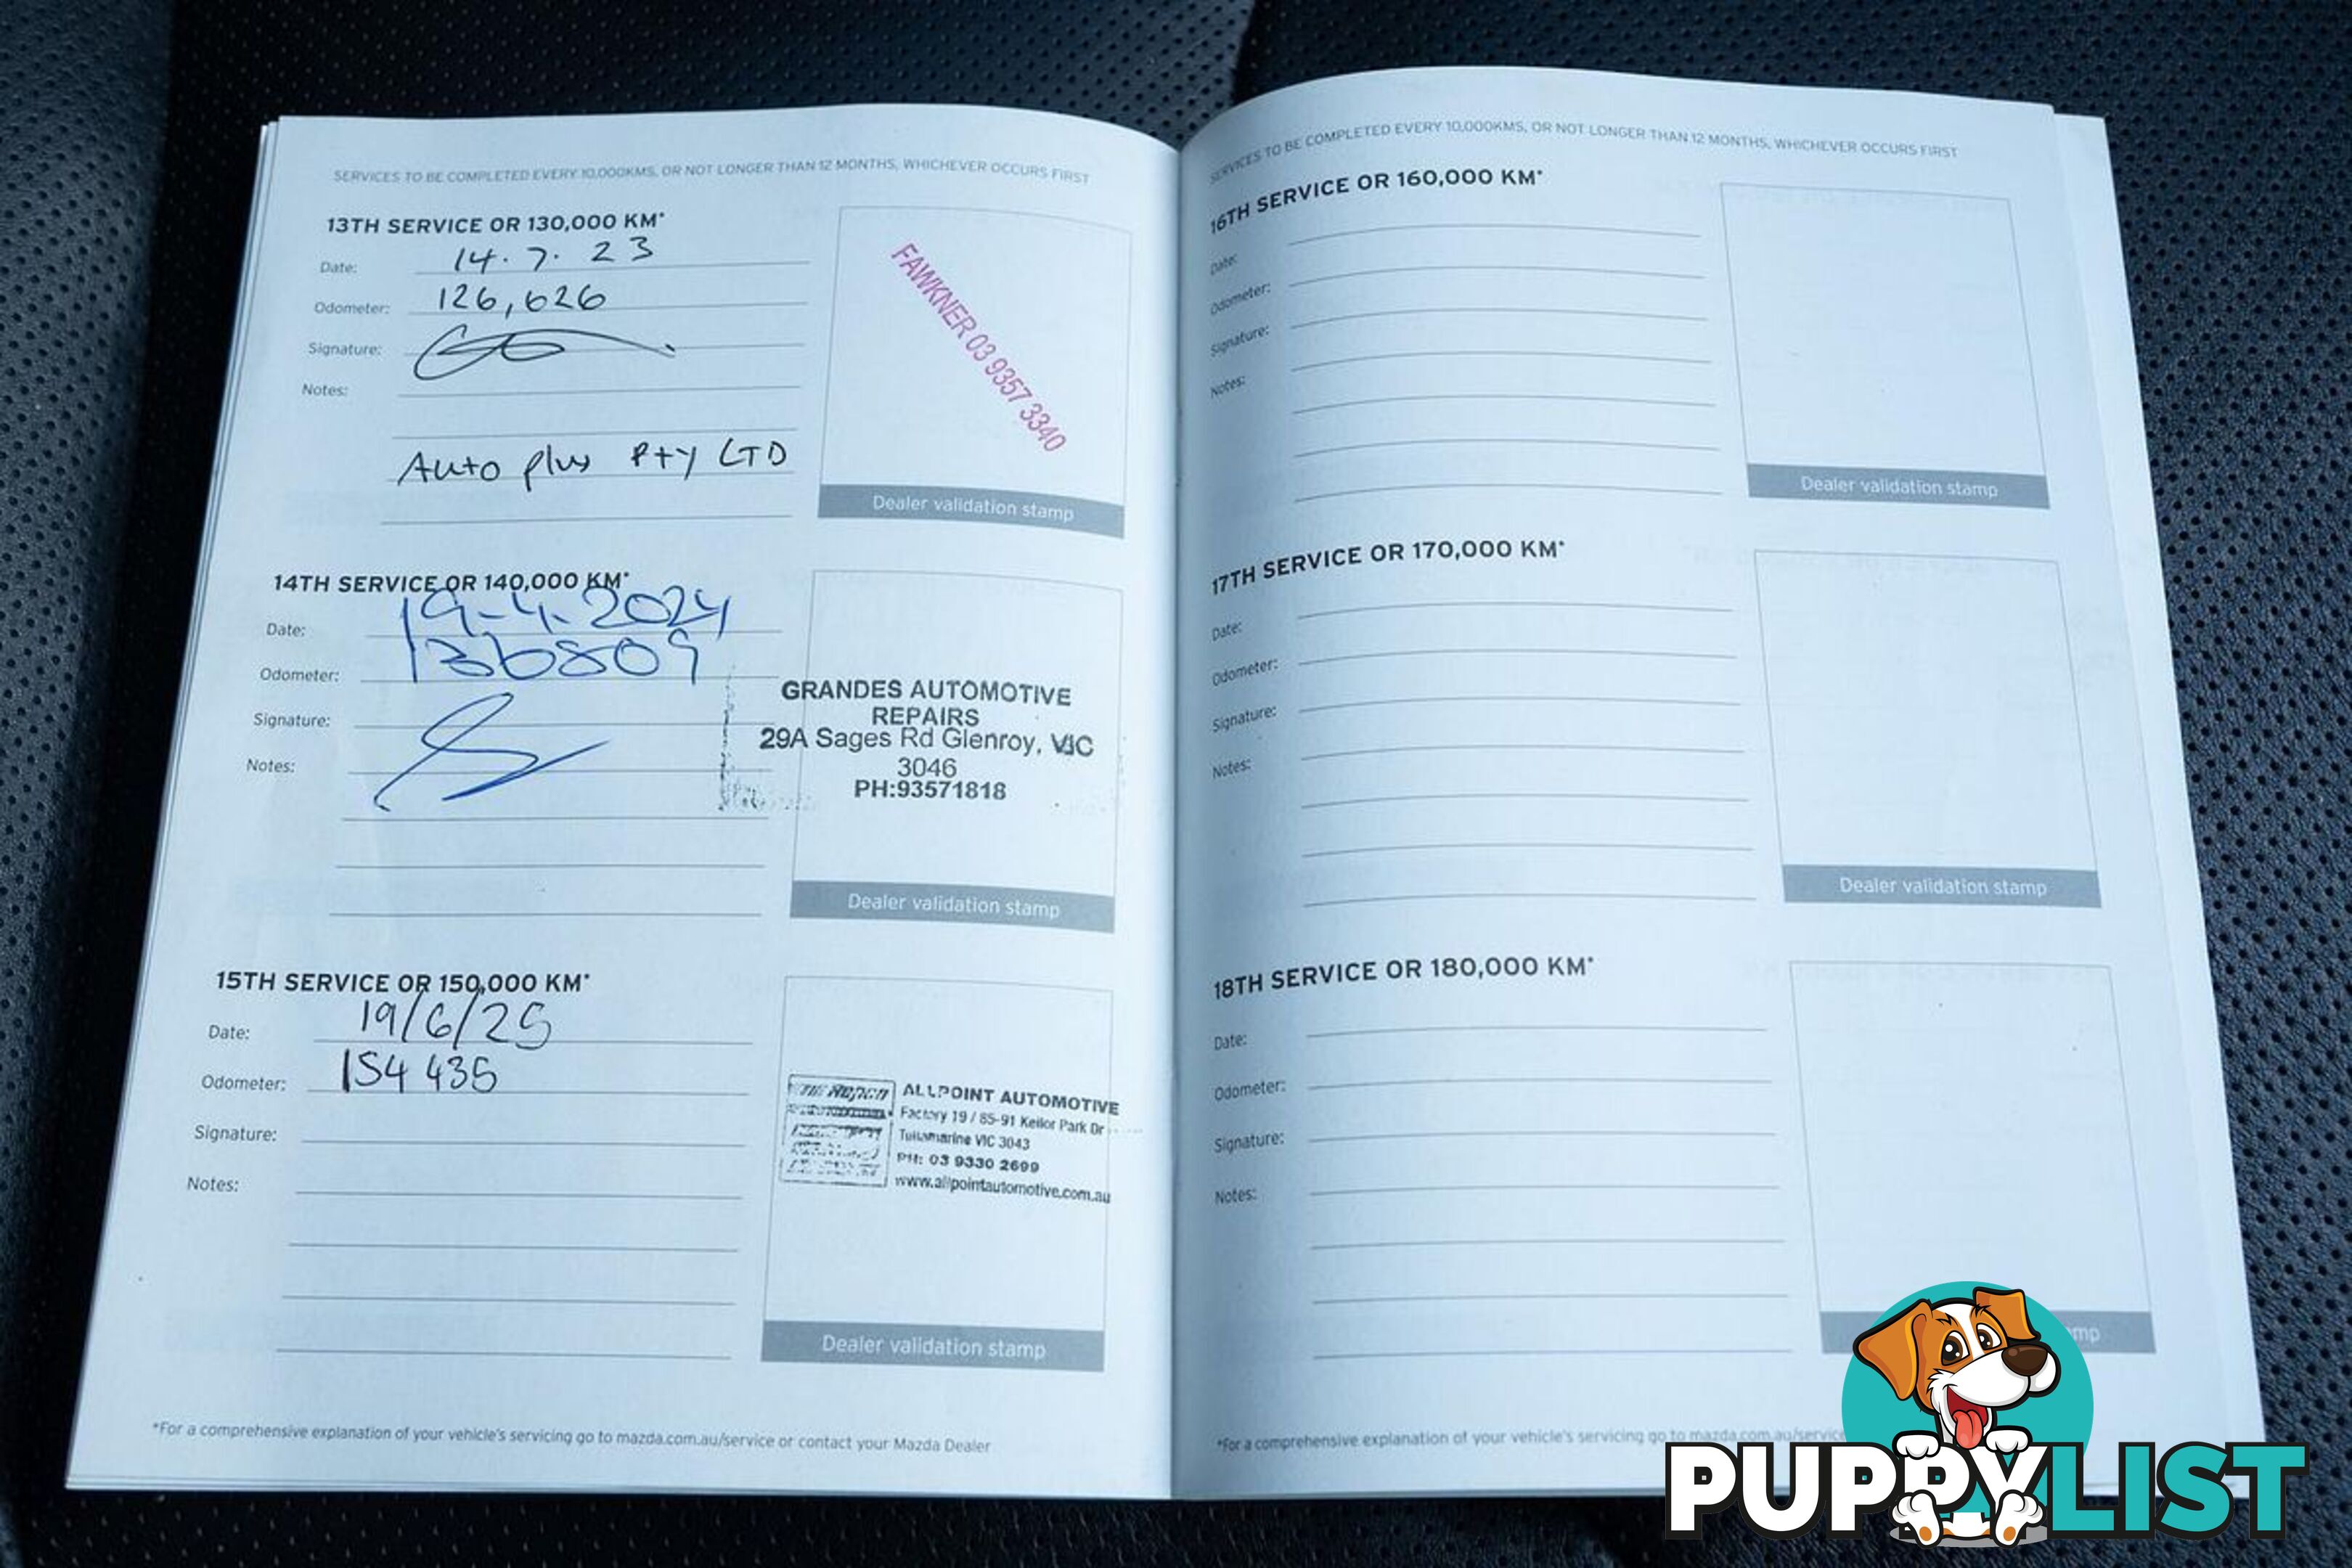 SERVICES TO BE COMPLETED EVERY 10,000KMS, OR NOT LONGER THAN 12 MONTHS, WHICHEVER OCCURS FIRST
13TH SERVICE OR 130,000 KM*
Date: 14.7.23
Odometer: 126,626
Signature:
Notes:
Auto plus Pty LTD
FAWKNER 03 9357 3340
Dealer validation stamp
14TH SERVICE OR 140,000 KM*
Date: 19-4-2024
Odometer: 136809
Signature:
Notes:
GRANDES AUTOMOTIVE
REPAIRS
29A Sages Rd Glenroy, VIC
3046
PH:93571818
Dealer validation stamp
15TH SERVICE OR 150,000 KM*
Date: 19/6/25
Odometer: 154 435
Signature:
Notes:
ALLPOINT AUTOMOTIVE
Factory 19 / 85-91 Keilor Park Dr
Tullamarine VIC 3043
PH: 03 9330 2699
www.allpointautomotive.com.au
Dealer validation stamp
*For a comprehensive explanation of your vehicle's servicing go to mazda.com.au/service or contact your Mazda Dealer
SERVICES TO BE COMPLETED EVERY 10,000KMS, OR NOT LONGER THAN 12 MONTHS, WHICHEVER OCCURS FIRST
16TH SERVICE OR 160,000 KM*
Date:
Odometer:
Signature:
Notes:
Dealer validation stamp
17TH SERVICE OR 170,000 KM*
Date:
Odometer:
Signature:
Notes:
Dealer validation stamp
18TH SERVICE OR 180,000 KM*
Date:
Odometer:
Signature:
Notes:
*For a comprehensive explanation of your vehicle's servicing go to mazda.com.au/service
PUPPYLIST